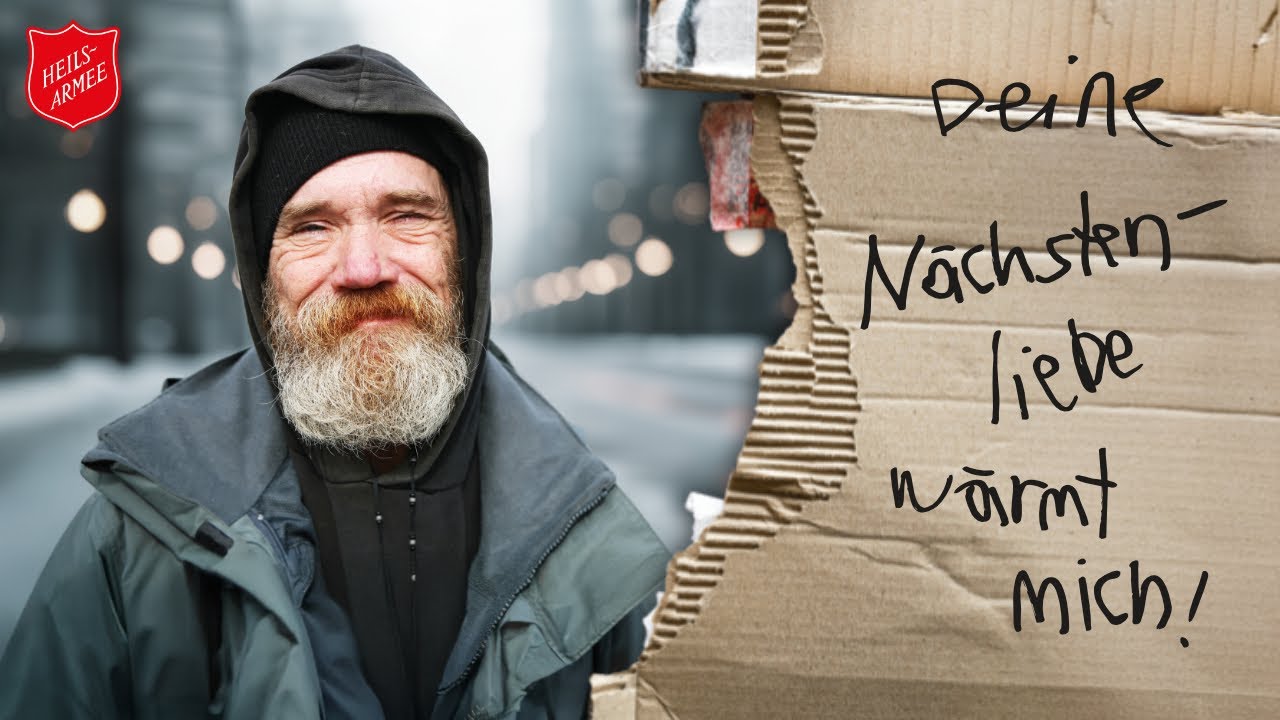 HEILS-
ARMEE
Deine
Nächsten-
liebe
wärmt
mich!